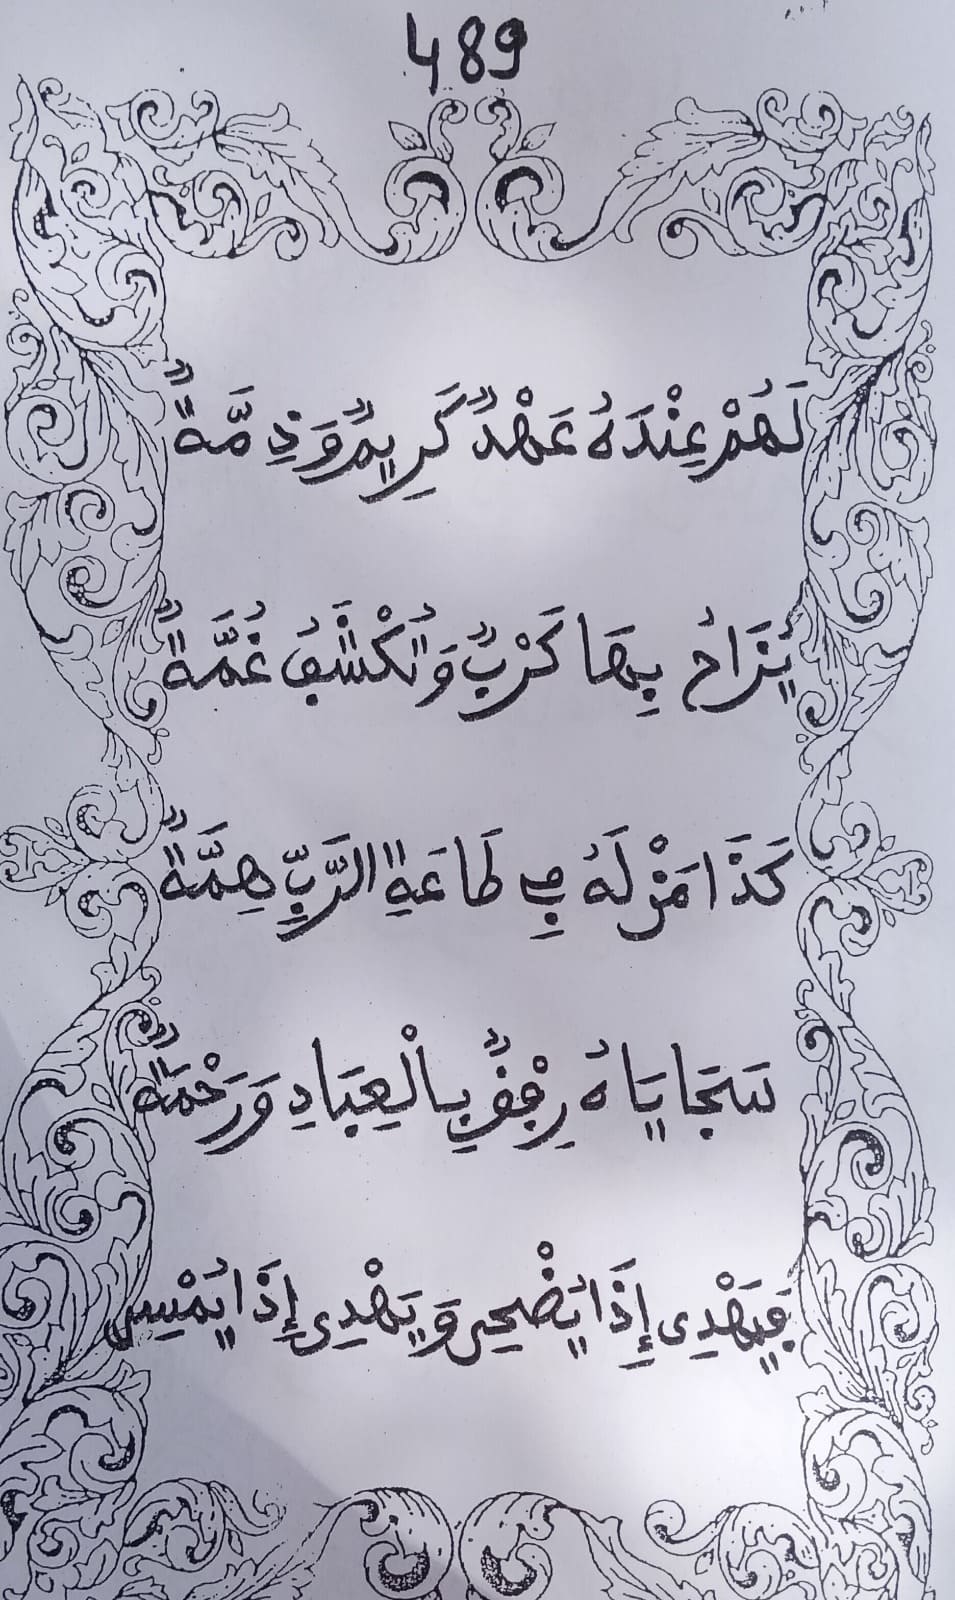 489
لَهُمْ عِنْدَهُ عَهْدٌ كَرِيمٌ وَذِمَّةٌ
يُزَاحُ بِهَا كَرْبٌ وَتُكْشَفُ غُمَّةٌ
كَذَا مَنْ لَهُ فِي طَاعَةِ الرَّبِّ هِمَّةٌ
سَجَايَاهُ رِفْقٌ بِالْعِبَادِ وَرَحْمَةٌ
فَيَهْدِي إِذَا يُضْحِي وَيَهْدِي إِذَا يُمْسِي